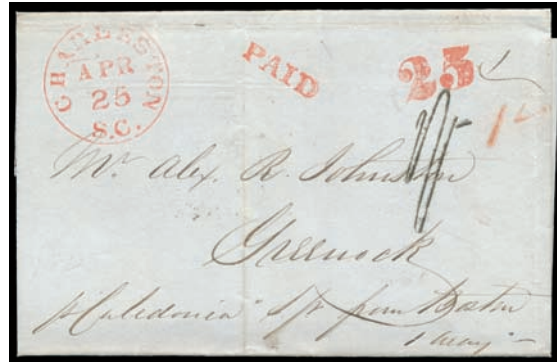 CHARLESTON
APR
25
S.C.
PAID
25
Mr. Alex. R. Johnston
Greenock
p "Caledonia" S/r from Boston
1 May